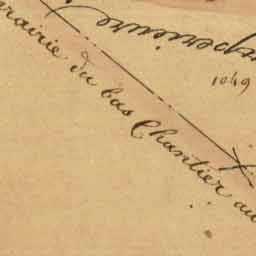 prairie du bas Chantier au
1049